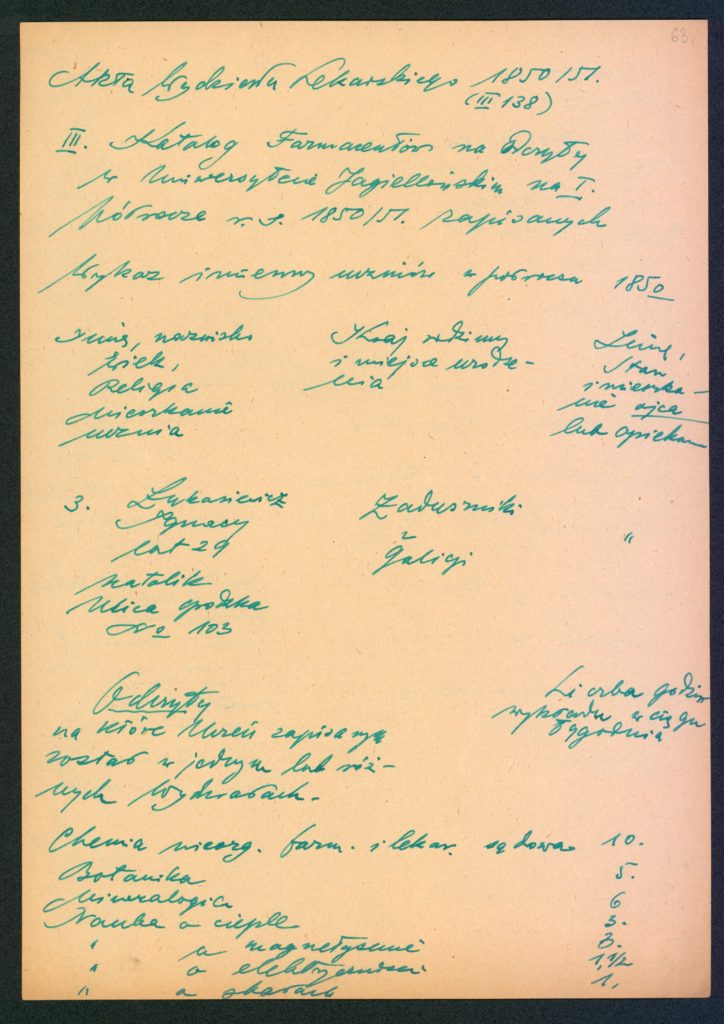 63.
Akta Wydziału Lekarskiego 1850/51.
(III 138)
III. Katalog Farmaceutów na Odczyty
w Uniwersytecie Jagiellońskim na I.
półrocze r. s. 1850/51. zapisanych
Wykaz imienny uczniów w półroczu 1850
Imię, nazwisko
wiek,
Religia
Mieszkanie
ucznia
Kraj rodzinny
i miejsce urodze-
nia
Imię,
Stan
i mieszka-
nie ojca
lub opiekuna
3. Łukasiewicz
Ignacy
lat 29
katolik
Ulica grodzka
No 103
Zaduszniki
z
Galicji
"
Odczyty
na które Uczeń zapisany
został w jednym lub róż-
nych Wydziałach.
Liczba godzin
wykładu w ciągu
tygodnia
Chemia nieorg. farm. i lekar. sądowa 10.
Botanika 5.
Mineralogia 6
Nauka o cieple 3.
" o magnetyzmie 3.
" o elektryczności 1, 1/2
" o 1,